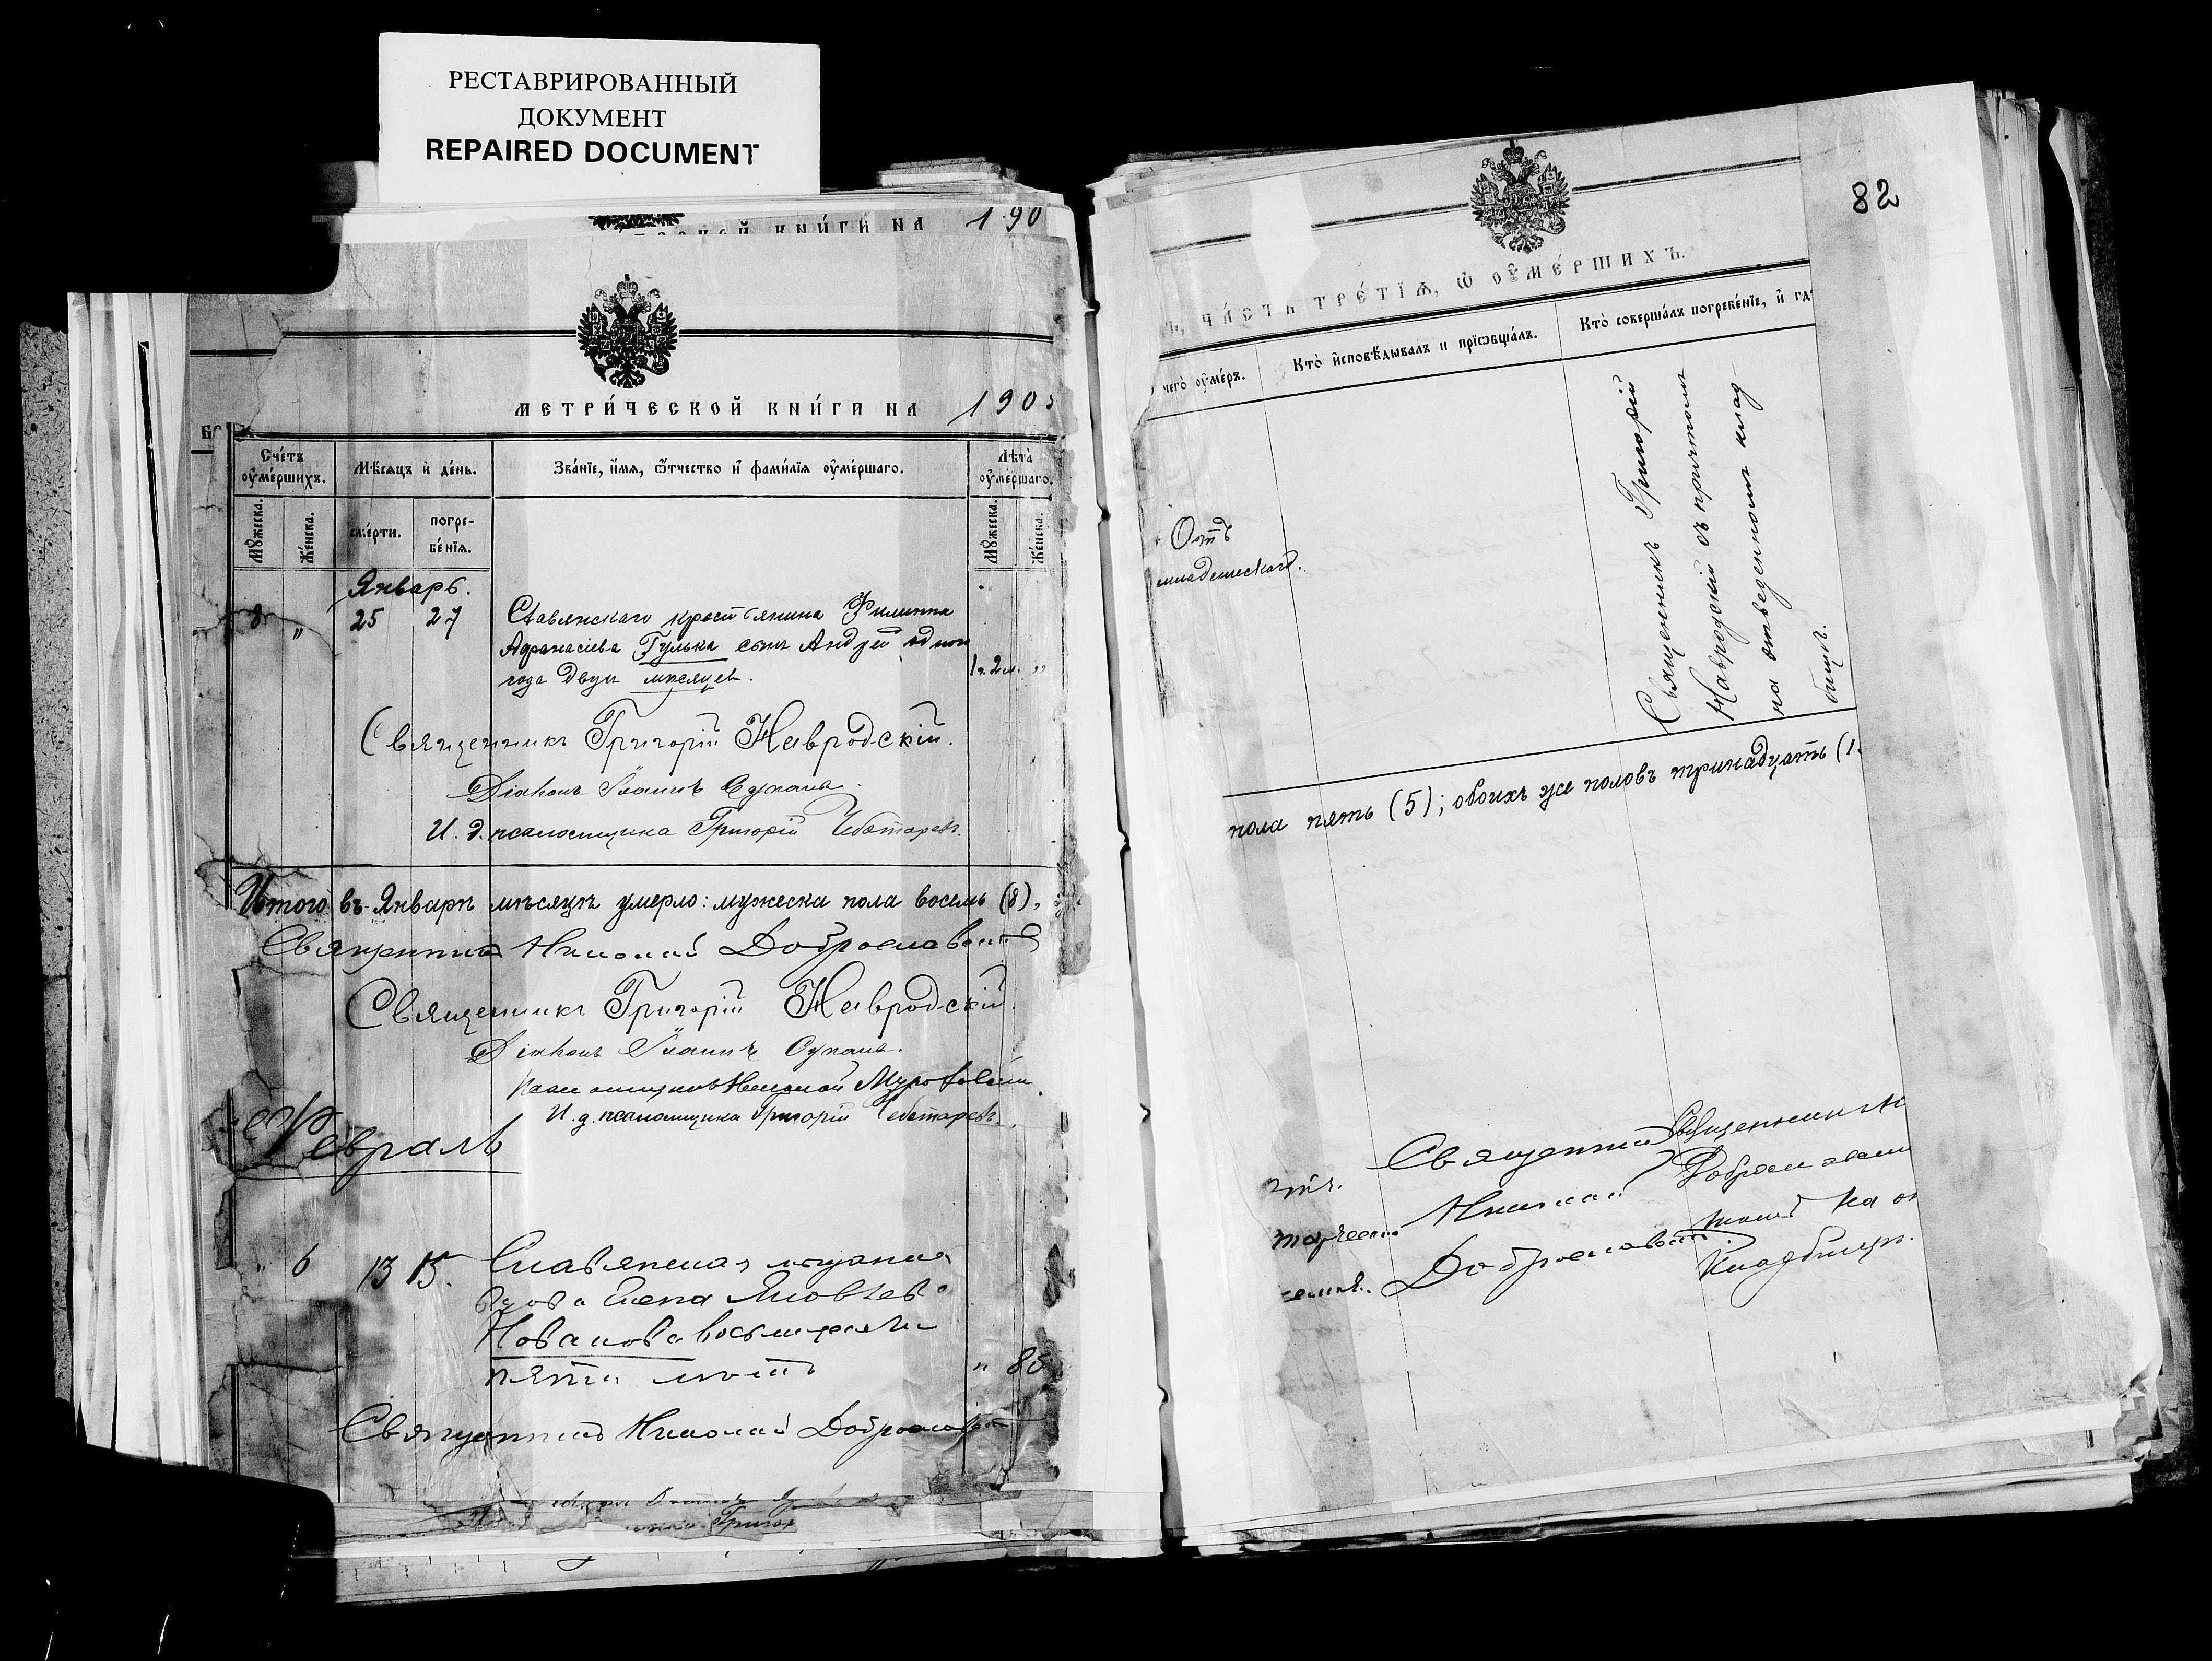 РЕСТАВРИРОВАННЫЙ
ДОКУМЕНТ
REPAIRED DOCUMENT
КНИ́ГИ НА 190
МЕТРИ́ЧЕСКОЙ КНИ́ГИ НА 190
Сче́тъ оу҆ме́ршихъ.
Мѣ́сяцъ и҆ де́нь.
Зва́нїе, и҆́мя, ѻ҆́тчество и҆ фами́лїя оу҆ме́ршаго.
Лѣ́та оу҆ме́ршаго.
Мꙋ́жеска.
Же́нска.
сме́рти.
погре-
бе́нїя.
Мꙋ́жеска.
Же́нска.
Январь.
8 " 25 27 Славянскаго крестьянина Филиппа
Афанасіева Гулька сынъ Андрей одного
года двухъ мѣсяцев. 1 г. 2 м. "
Священникъ Григорій Навродскій.
Діаконъ Іоаннъ
И. д. псаломщика Григорій Чеботаревъ.
Итого въ Январѣ мѣсяцѣ умерло: мужеска пола восемь (8),
Священникъ Николай Доброславскій
Священникъ Григорій Навродскій.
Діаконъ Іоаннъ
И. д. псаломщика Григорій Чеботаревъ.
Февраль
" 6 13 15. Славянская мѣщанка
вдова Елена Яковлева
восьмидесяти
пяти лѣтъ " 85
Священникъ Николай Доброславскій
Григор
82
ЧА́СТЬ ТРЕ́ТІѦ, Ѽ ОУ҆МЕ́РШИХЪ.
чего̀ оу҆́меръ.
Кто̀ и҆сповѣ́дывалъ и прїѡбща́лъ.
Кто̀ соверша́лъ погребе́нїе, и҆ гд
Отъ
младенческаго.
Священникъ Григорій
Навродскій съ причтомъ
на отведенномъ клад-
бищѣ.
пола пять (5); обоихъ же половъ тринадцать (1
Священникъ Священникъ
Николай Доброславскі
Доброславскій на от
Кладбищѣ.